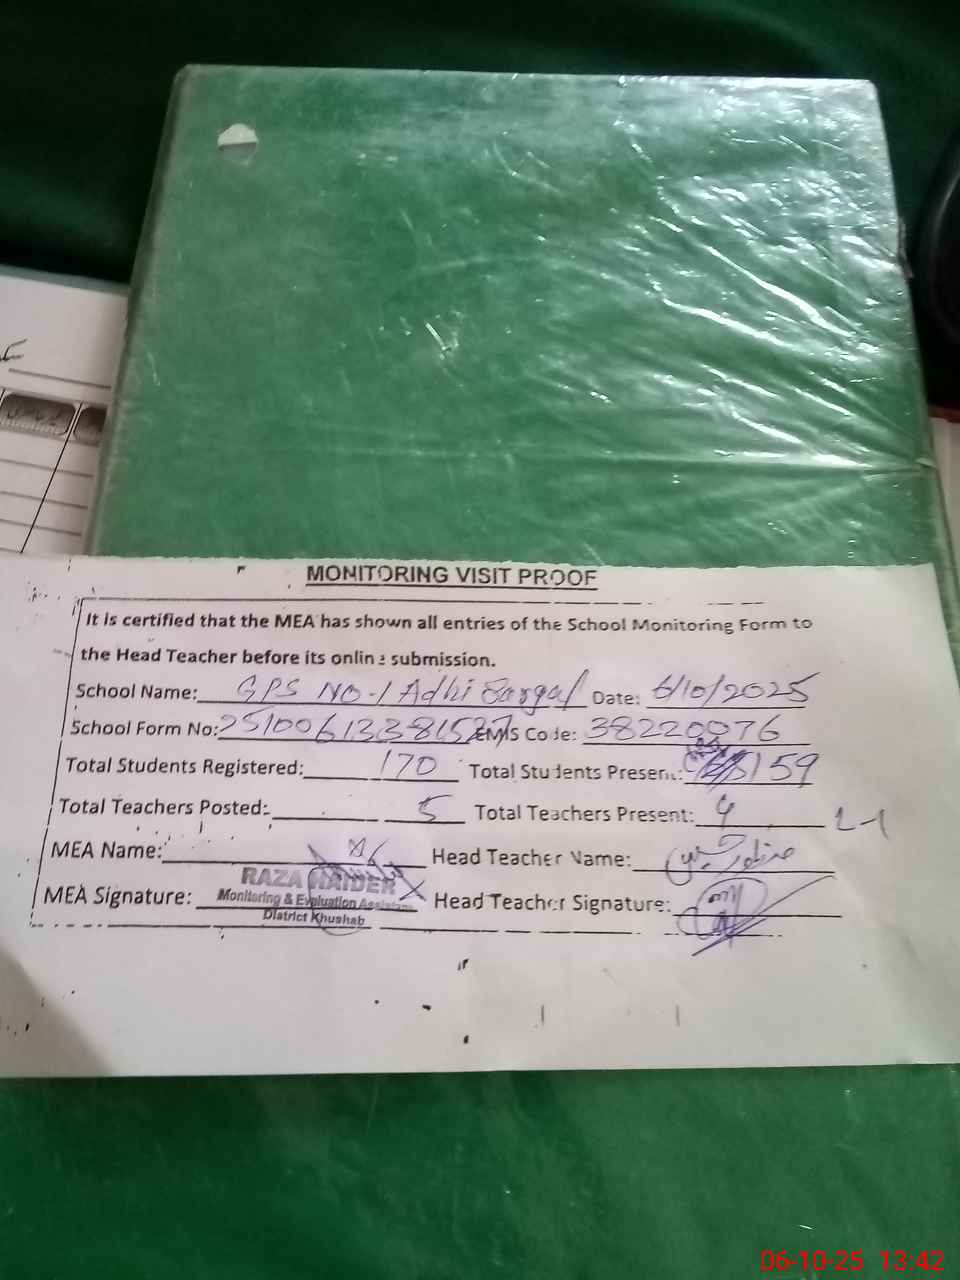 MONITORING VISIT PROOF
It is certified that the MEA has shown all entries of the School Monitoring Form to
the Head Teacher before its online submission.
School Name: GPS NO-1 Adhi Sargal Date: 6/10/2025
School Form No: 25100613381527 EMIS Code: 38220076
Total Students Registered: 170 Total Students Present: 159
Total Teachers Posted: 5 Total Teachers Present: 4 L-1
MEA Name: Head Teacher Name:
MEA Signature: Head Teacher Signature:
RAZA HAIDER
Monitoring & Evaluation Assistant
District Khushab
06-10-25 13:42